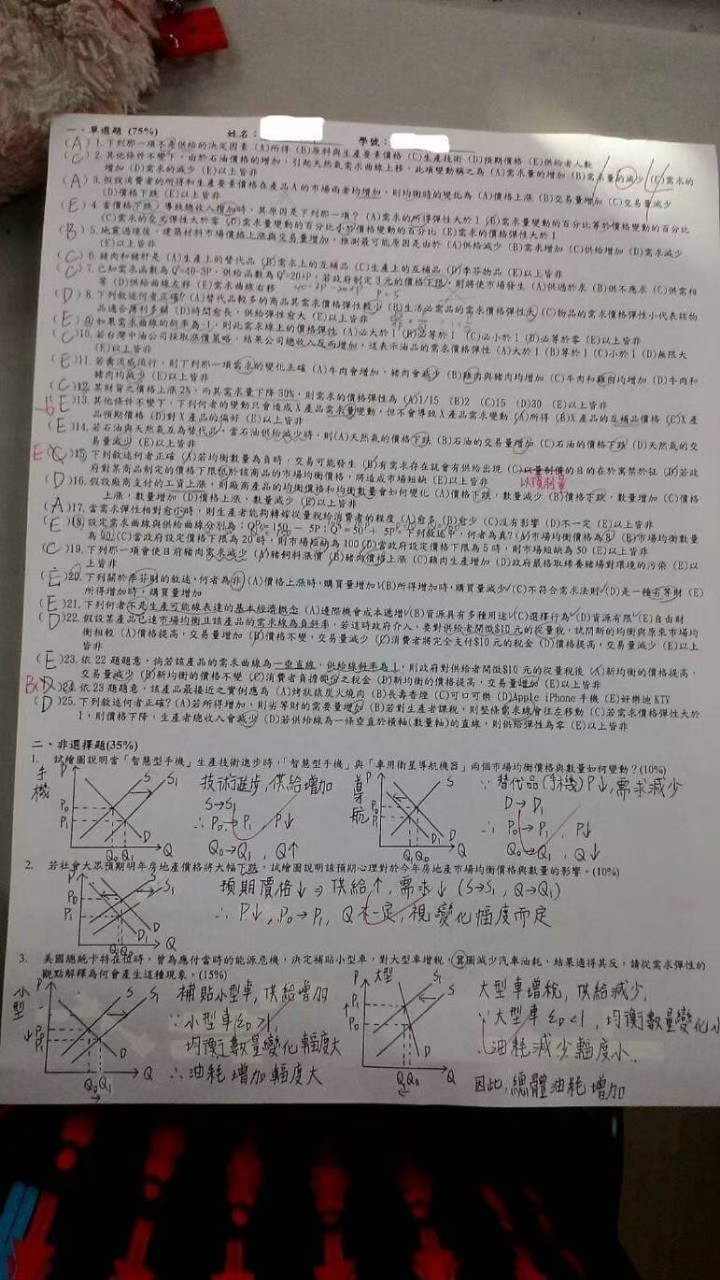 一、單選題 (75%) 姓名: 學號:
(A) 1.下列那一項不是供給的決定因素 (A)所得 (B)原料與生產要素價格 (C)生產技術 (D)預期價格 (E)供給者人數
(C) 2.其他條件不變下,由於石油價格的增加,引起天然氣需求曲線上移,此項變動稱之為 (A)需求量的增加 (B)需求量的減少 (C)需求的
增加 (D)需求的減少 (E)以上皆非
(A) 3.假設消費者的所得和生產要素價格在產品A的市場兩者均增加,則均衡時的變化為 (A)價格上漲 (B)交易量增加 (C)交易量減少
(D)價格下跌 (E)以上皆非
(E) 4.當價格下跌,導致總收入增加時,其原因是下列那一項? (A)需求的所得彈性大於1 (B)需求量變動的百分比等於價格變動的百分比
(C)需求的交叉彈性大於零 (D)需求量變動的百分比小於價格變動的百分比 (E)需求的價格彈性大於1
(B) 5.地震過後,建築材料市場價格上漲與交易量增加,推測最可能原因是由於 (A)供給減少 (B)需求增加 (C)供給增加 (D)需求減少
(E)以上皆非
(C) 6.豬肉和豬肝是 (A)生產上的替代品 (B)需求上的互補品 (C)生產上的互補品 (D)季芬物品 (E)以上皆非
(C) 7.已知需求函數為 供給函數為 若政府制定3元的價格下限,則將使市場發生 (A)供過於求 (B)供不應求 (C)供需相
等 (D)供給曲線左移 (E)需求曲線右移
(D) 8.下列敘述何者正確? (A)替代品較多的商品其需求價格彈性較小 (B)生活必需品的需求價格彈性大 (C)物品的需求價格彈性小代表該物
品適合薄利多銷 (D)時間愈長,供給彈性愈大 (E)以上皆非
(E) 9.如果需求曲線的斜率為-1,則此需求線上的價格彈性 (A)必大於1 (B)必等於1 (C)必小於1 (D)必等於零 (E)以上皆非
(C) 10.若台灣中油公司採取漲價策略,結果公司總收入反而增加,這表示油品的需求價格彈性 (A)大於1 (B)等於1 (C)小於1 (D)無限大
(E)以上皆非
(E) 11.若禽流感流行,則下列那一項需求的變化正確 (A)牛肉會增加,豬肉會減少 (B)雞肉與豬肉均增加 (C)牛肉和雞肉均增加 (D)牛肉和
豬肉均減少 (E)以上皆非
(C) 12.某財貨之價格上漲2%,而其需求量下降30%,則需求的價格彈性為 (A)1/15 (B)2 (C)15 (D)30 (E)以上皆非
(E) 13.其他條件不變下,下列何者的變動只會造成X產品需求量變動,但不會導致X產品需求變動 (A)所得 (B)X產品的互補品價格 (C)X產
品預期價格 (D)對X產品的偏好 (E)以上皆非
(E) 14.若石油與天然氣互為替代品,當石油供給減少時,則(A)天然氣的價格下跌 (B)石油的交易量增加 (C)石油的價格下跌 (D)天然氣的交
易量減少 (E)以上皆非
E (C) 15.下列敘述何者正確 (A)若均衡數量為負時,交易可能發生 (B)有需求存在就會有供給出現 (C)以量制價的目的在於寓禁於征 (D)若政
府對某商品制定的價格下限低於該商品的市場均衡價格,將造成市場短缺 (E)以上皆非 以價制量
(D) 16.假設廠商支付的工資上漲,則廠商產品的均衡價格和均衡數量會如何變化 (A)價格下跌,數量減少 (B)價格下跌,數量增加 (C)價格
上漲,數量增加 (D)價格上漲,數量減少 (E)以上皆非
(A) 17.當需求彈性相對愈小時,則生產者能夠轉嫁從量稅給消費者的程度 (A)愈多 (B)愈少 (C)沒有影響 (D)不一定 (E)以上皆非
(E) 18.設定需求曲線與供給曲線分別為: 下列敘述中,何者為真? (A)市場均衡價格為8 (B)市場均衡數量
為90 (C)當政府設定價格下限為20時,則市場短缺為100 (D)當政府設定價格下限為5時,則市場短缺為50 (E)以上皆非
(C) 19.下列那一項會使目前豬肉需求減少 (A)豬飼料漲價 (B)豬肉價格上漲 (C)雞肉生產增加 (D)政府嚴格取締養豬場對環境的污染 (E)以
上皆非
(E) 20.下列關於季芬財的敘述,何者為非 (A)價格上漲時,購買量增加 (B)所得增加時,購買量減少 (C)不符合需求法則 (D)是一種劣等財 (E)
所得增加時,購買量增加
(E) 21.下列何者不是生產可能線表達的基本經濟概念 (A)邊際機會成本遞增 (B)資源具有多種用途 (C)選擇行為 (D)資源有限 (E)自由財
(D) 22.假設某產品已達市場均衡且該產品的需求線為負斜率,若這時政府介入,要對供給者開徵$10元的從量稅,試問新的均衡與原來市場均
衡相較 (A)價格提高,交易量增加 (B)價格不變,交易量減少 (C)消費者將完全支付$10元的稅金 (D)價格提高,交易量減少 (E)以上
皆非
(E) 23.依22題題意,倘若該產品的需求曲線為一垂直線,供給線斜率為1,則政府對供給者開徵$10元的從量稅後 (A)新均衡的價格提高,
交易量減少 (B)新均衡的價格不變 (C)消費者負擔部分之稅金 (D)新均衡的價格提高,交易量增加 (E)以上皆非
B (D) 24.依23題題意,該產品最接近之實例應為 (A)烤狀脆炭火燒肉 (B)長壽香煙 (C)可口可樂 (D)Apple iPhone手機 (E)好樂迪KTV
(D) 25.下列敘述何者正確? (A)若所得增加,則劣等財的需要量增加 (B)若對生產者課稅,則整條需求線會往左移動 (C)若需求價格彈性大於
1,則價格下降,生產者總收入會減少 (D)若供給線為一條垂直於橫軸(數量軸)的直線,則供給彈性為零 (E)以上皆非
二、非選擇題(35%)
1. 試繪圖說明當「智慧型手機」生產技術進步時,「智慧型手機」與「車用衛星導航機器」兩個市場均衡價格與數量如何變動?(10%)
手機 P S S1 P0 P1 D Q0 Q1 Q
技術進步,供給增加
S→S1
∴ P0→P1 , P↓
Q0→Q1 , Q↑
導航 P S P0 P1 D1 D Q1 Q0 Q
∵ 替代品(手機) P↓,需求減少
D→D1
∴ P0→P1 , P↓
Q0→Q1 , Q↓
2. 若社會大眾預期明年房地產價格將大幅下跌,試繪圖說明該預期心理對於今年房地產市場均衡價格與數量的影響。(10%)
P S S1 P0 P1 D1 D Q
預期價格↓ ⇒ 供給↑,需求↓ (S→S1, Q→Q1)
∴ P↓, P0→P1, Q不一定,視變化幅度而定
3. 美國總統卡特在位時,曾為應付當時的能源危機,決定補貼小型車,對大型車增稅,企圖減少汽車油耗,結果適得其反,請從需求彈性的
觀點解釋為何會產生這種現象。(15%)
小型 P S S1 P0 P1 D Q0 Q1 Q
補貼小型車,供給增加
∵小型車εD>1,
均衡數量變化幅度大
∴油耗增加幅度大
大型 P S1 S P1 P0 D Q1 Q0 Q
大型車增稅,供給減少,
∵大型車εD<1,均衡數量變化小
∴油耗減少幅度小.
因此,總體油耗增加